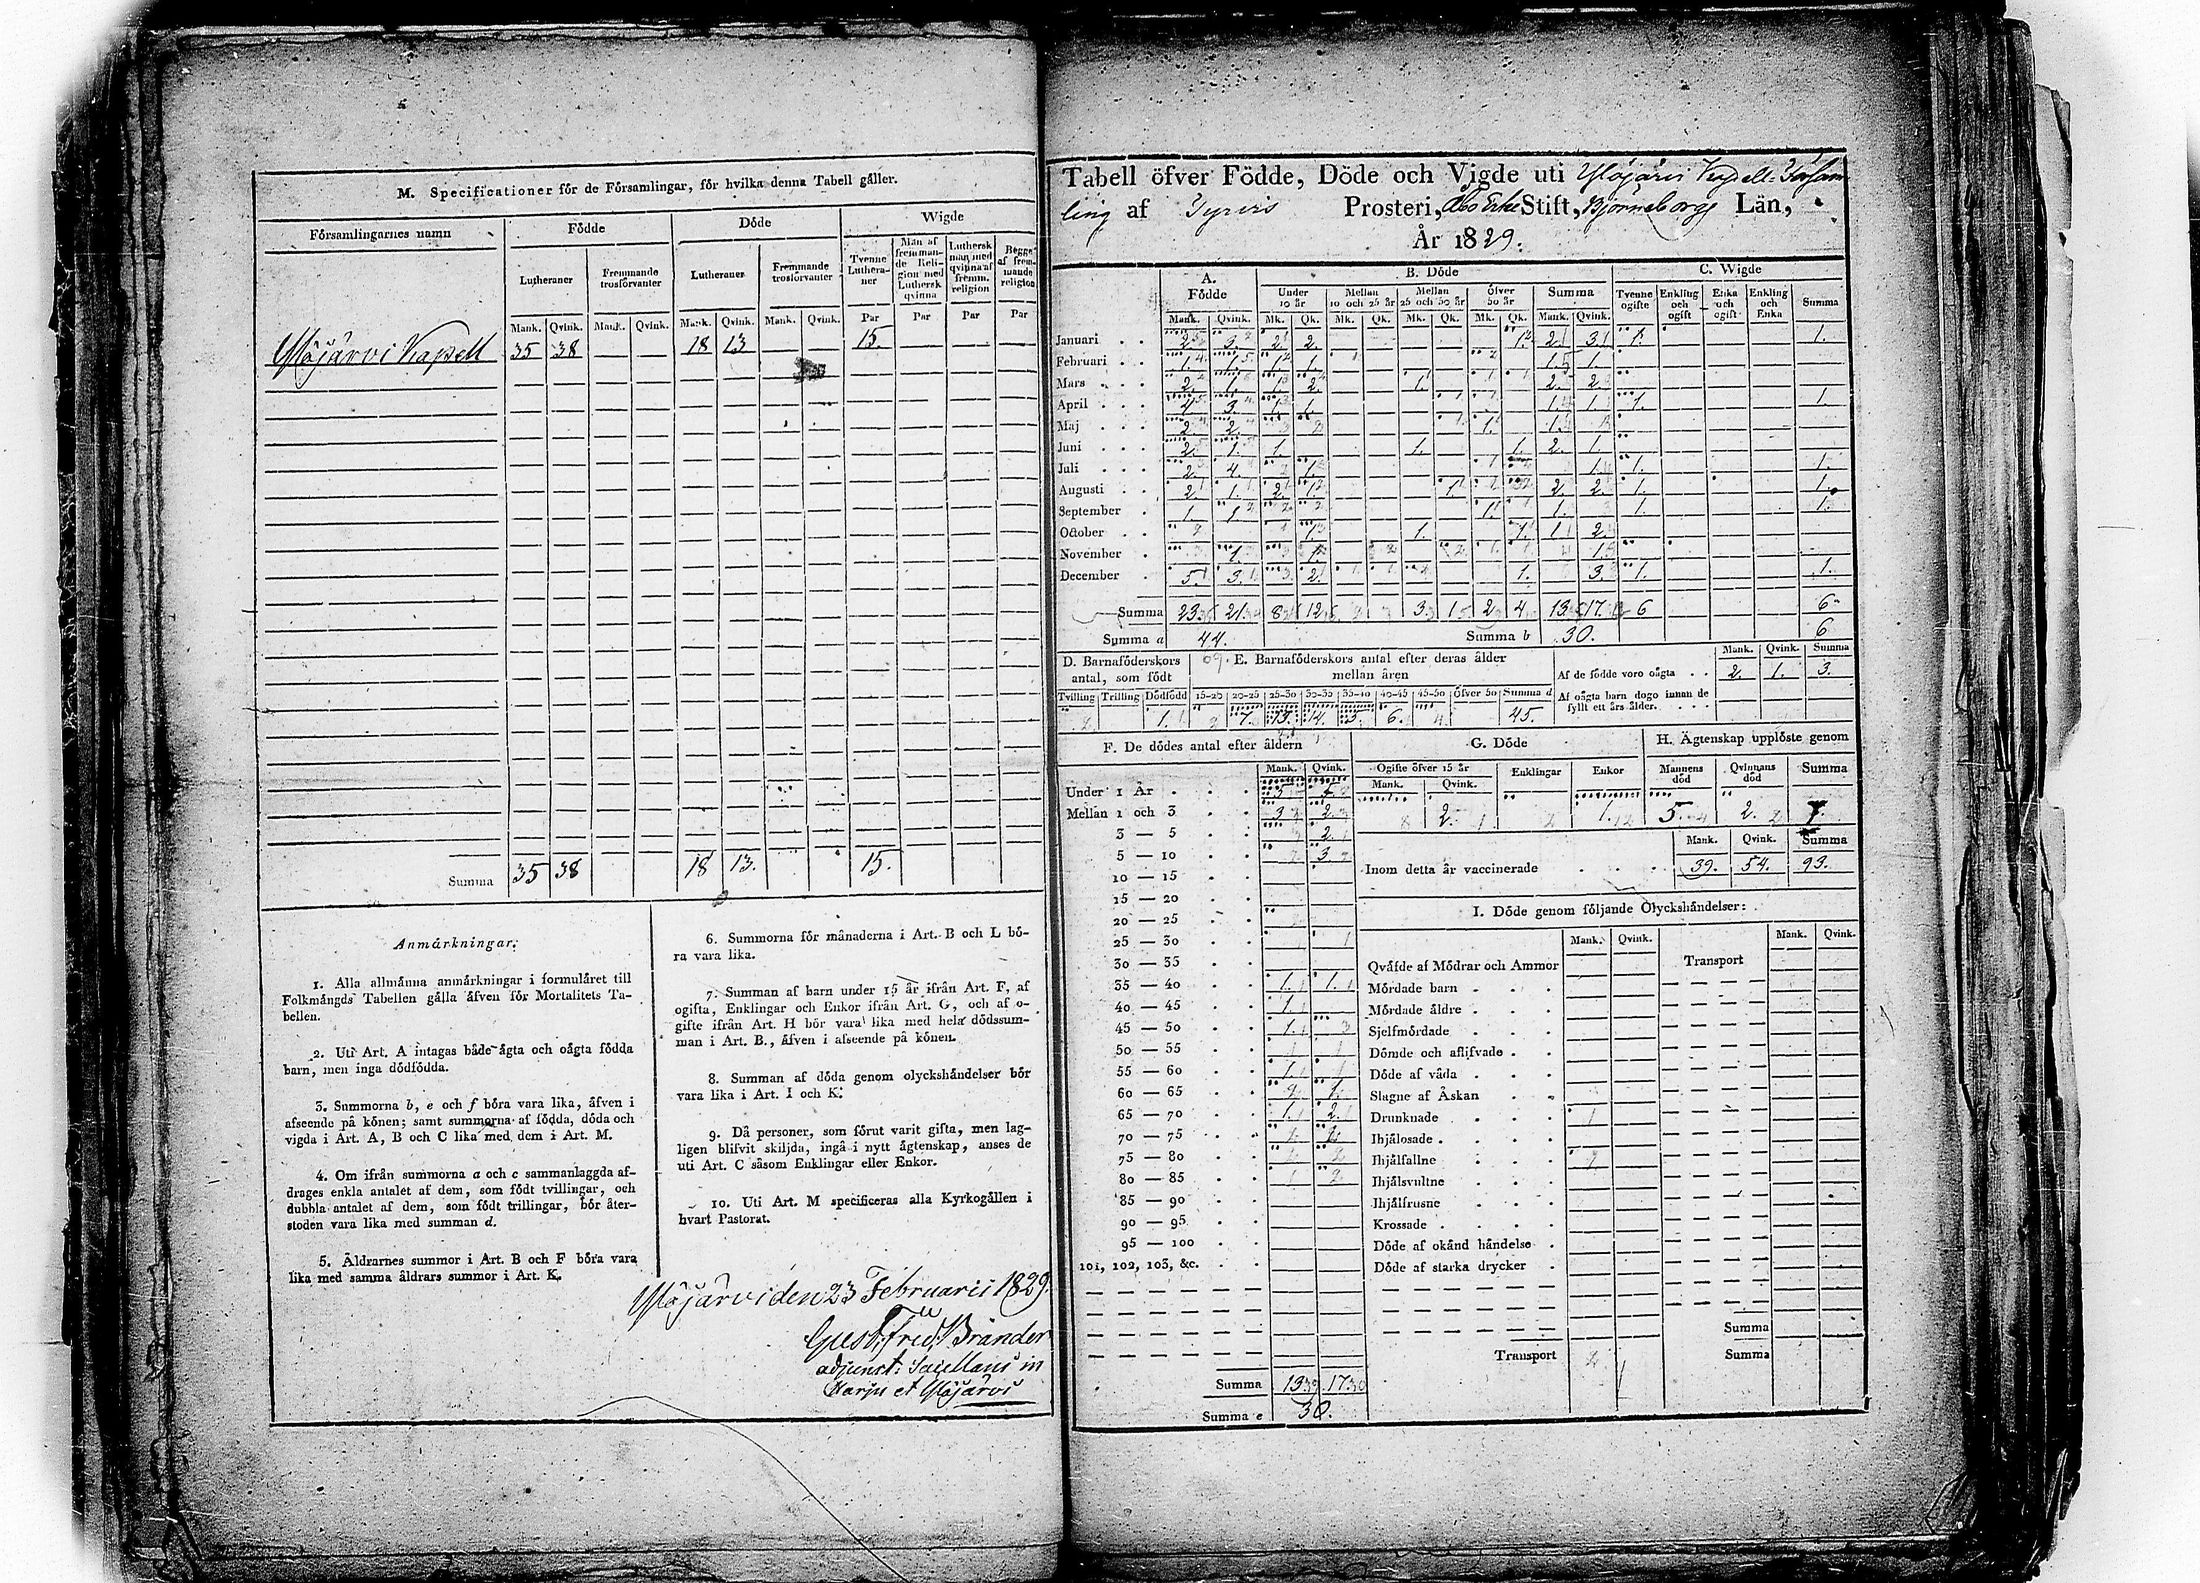 M. Specificationer för de Församlingar, för hvilka denna Tabell gäller.
Församlingarnes namn
Födde
Döde
Wigde
Lutheraner
Fremmande trosförvanter
Lutheraner
Fremmande trosförvanter
Tvenne Lutheraner
Män af fremmande Religion med Luthersk qvinna
Luthersk man med qvinna af främm. religion
Bägge af fremmande religion
Mank. Qvink. Mank. Qvink. Mank. Qvink. Mank. Qvink. Par Par Par Par
Ylöjärvi Kapell 35 38 18 13 15.
Summa 35 38 18 13. 15.
Anmärkningar:
1. Alla allmänna anmärkningar i formuläret till
Folkmängds Tabellen gälla äfven för Mortalitets Ta-
bellen.
2. Uti Art. A intagas både ägta och oägta födda
barn, men inga dödfödda.
3. Summorna b, e och f böra vara lika, äfven i
afseende på könen; samt summorna af födda, döda och
vigda i Art. A, B och C lika med dem i Art. M.
4. Om ifrån summorna a och c sammanlaggda af-
drages enkla antalet af dem, som födt tvillingar, och
dubbla antalet af dem, som födt trillingar, bör åter-
stoden vara lika med summan d.
5. Äldrarnes summor i Art. B och F böra vara
lika med samma åldrars summor i Art. K.
6. Summorna för månaderna i Art. B och L bö-
ra vara lika.
7. Summan af barn under 15 år ifrån Art. F, af
ogifta, Enklingar och Enkor ifrån Art. G, och af o-
gifte ifrån Art. H bör vara lika med hela dödssum-
man i Art. B., äfven i afseende på könen.
8. Summan af döda genom olyckshändelser bör
vara lika i Art. I och K.
9. Då personer, som förut varit gifta, men lag-
ligen blifvit skiljda, ingå i nytt ägtenskap, anses de
uti Art. C såsom Enklingar eller Enkor.
10. Uti Art. M specificeras alla Kyrkogällen i
hvart Pastorat.
Ylöjärvi den 23 Februarii 1829.
Gust. Fred. Brander
adjunct: Sacellans in
Harju et Ylöjärvi
Tabell öfver Födde, Döde och Vigde uti Ylöjärvi Kapell-Församling
af Tyrvis Prosteri, Åbo Erke Stift, Björneborgs Län,
År 1829.
A. Födde
B. Döde
C. Wigde
Under 10 år
Mellan 10 och 25 år
Mellan 25 och 50 år
öfver 50 år
Summa
Tvenne ogifte
Enkling och ogift
Enka och ogift
Enkling och Enka
Summa
Mank. Qvink. Mk. Qk. Mk. Qk. Mk. Qk. Mk. Qk. Mank. Qvink.
Januari 2 3 2 2 1 2 3 1 1.
Februari 1 1 1 1 1
Mars 2 1 1 2 1 2 2
April 4 3 1 1 1 1 1 1.
Maj 2 2 1 1
Juni 2 1 1 1 1 2 1
Juli 2 4 1 1 1 1.
Augusti 2 1 2 1 1 2 2 1 1.
September 1 1 1 1 1 1.
October 1 1 1 1 2
November 1 1 1
December 5 3 2 1 3 1 1.
Summa 23 21 8 12 3 1 2 4 13 17 6 6
Summa a 44. Summa b 30. 6
D. Barnaföderskors antal, som födt
E. Barnaföderskors antal efter deras ålder mellan åren
Tvilling Trilling Dödfödd 15-20 20-25 25-30 30-35 35-40 40-45 45-50 Öfver 50 Summa d
1. 7. 13. 14. 5. 6. 45.
Mank. Qvink. Summa
Af de födde voro oägta 2. 1. 3.
Af oägta barn dogo innan de fyllt ett års ålder.
F. De dödes antal efter åldern
Mank. Qvink.
Under 1 År 5 5
Mellan 1 och 3 3 2
3 — 5 2
5 — 10 3
10 — 15
15 — 20
20 — 25
25 — 30
30 — 35
35 — 40 1. 1.
40 — 45 1.
45 — 50 1.
50 — 55
55 — 60 1.
60 — 65 1.
65 — 70 1. 2.
70 — 75
75 — 80
80 — 85
85 — 90
90 — 95
95 — 100
101, 102, 103, &c.
Summa 13 17
Summa e 30.
G. Döde
Ogifte öfver 15 år
Mank. Qvink. Enklingar Enkor
2. 1.
H. Ägtenskap upplöste genom
Mannens död Qvinnans död Summa
5. 2. 7.
Mank. Qvink. Summa
Inom detta år vaccinerade 39. 54. 93.
I. Döde genom följande Olyckshändelser:
Mank. Qvink. Mank. Qvink.
Qväfde af Mödrar och Ammor
Transport
Mördade barn
Mördade äldre
Sjelfmördade
Dömde och aflifvade
Döde af våda
Slagne af Åskan
Drunknade
Ihjälosade
Ihjälfallne
Ihjälsvultne
Ihjälfrusne
Krossade
Döde af okänd händelse
Döde af starka drycker
Summa
Transport
Summa